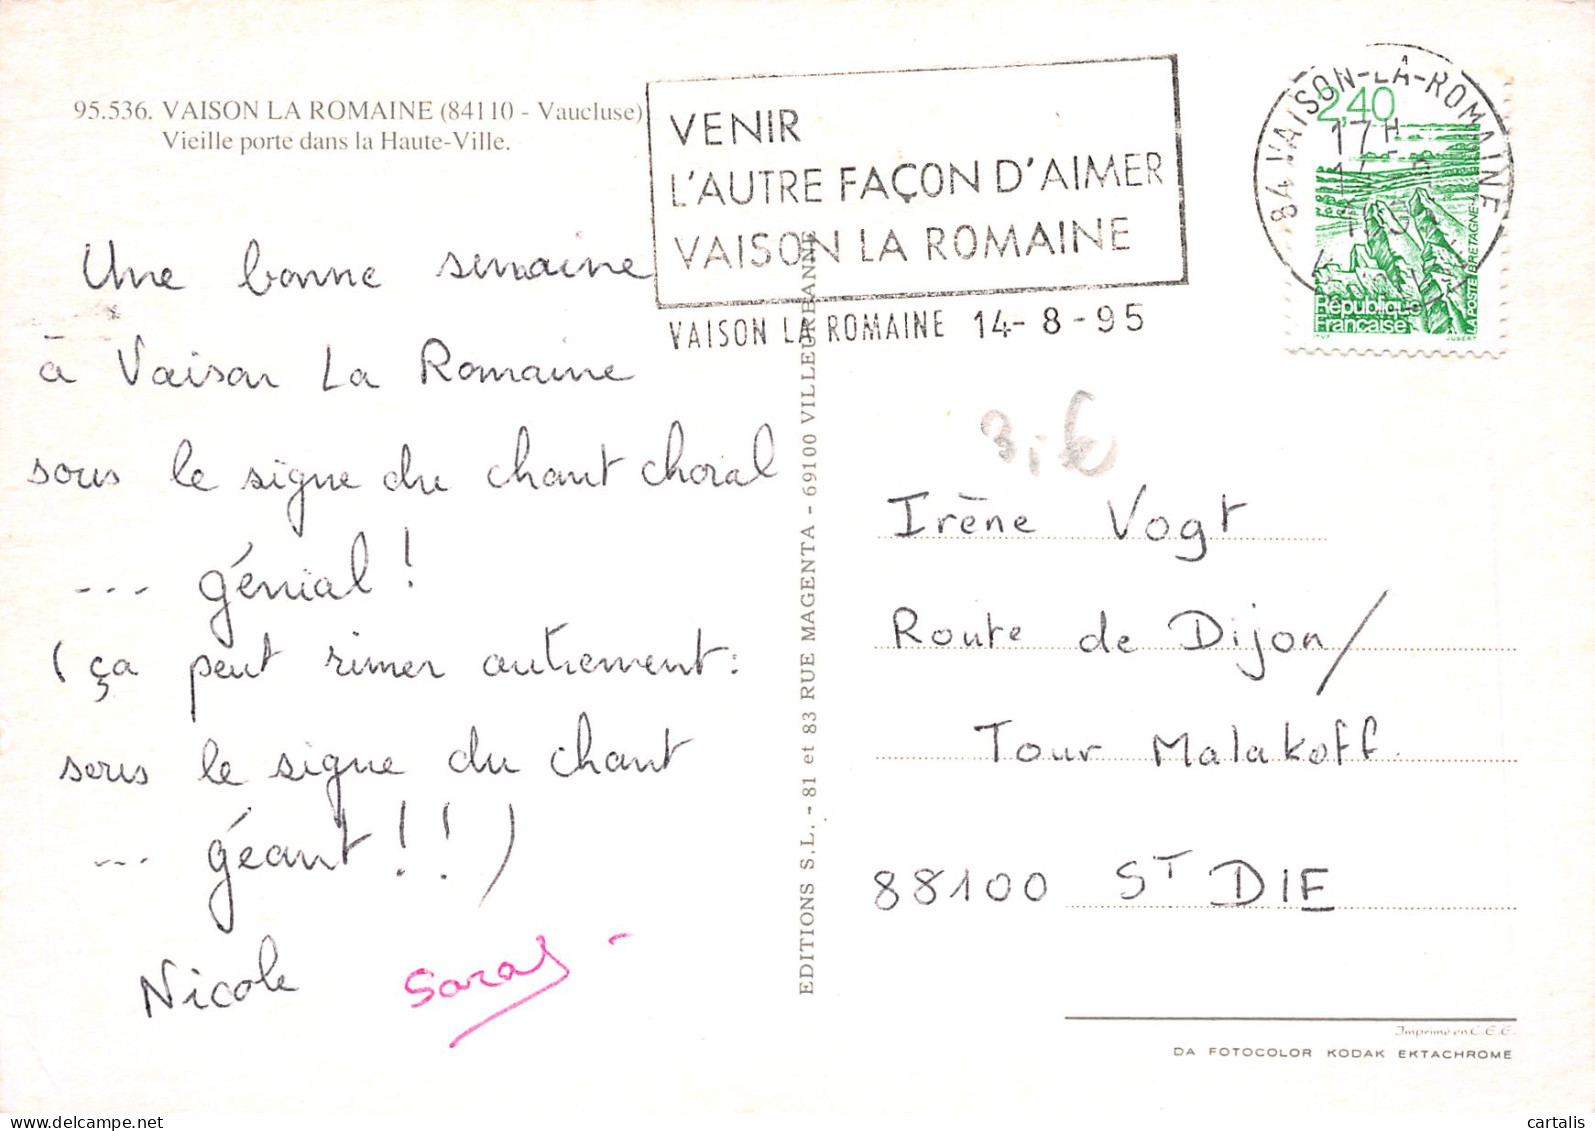 95.536. VAISON LA ROMAINE (84110 - Vaucluse)
Vieille porte dans la Haute-Ville.
VENIR
L'AUTRE FAÇON D'AIMER
VAISON LA ROMAINE
VAISON LA ROMAINE 14-8-95
84 VAISON-LA-ROMAINE
17H
2,40
République
Française
LA POSTE BRETAGNE
ITVF JUBERT
Une bonne semaine
à Vaison La Romaine
sous le signe du chant choral
--- génial !
(ça peut rimer autrement :
sous le signe du chant
--- géant !! )
Nicole Saray
EDITIONS S.L. - 81 et 83 RUE MAGENTA - 69100 VILLEURBANNE
Irène Vogt
Route de Dijon/
Tour Malakoff
88100 ST DIE
Imprimé en C.E.E.
DA FOTOCOLOR KODAK EKTACHROME
cartalis